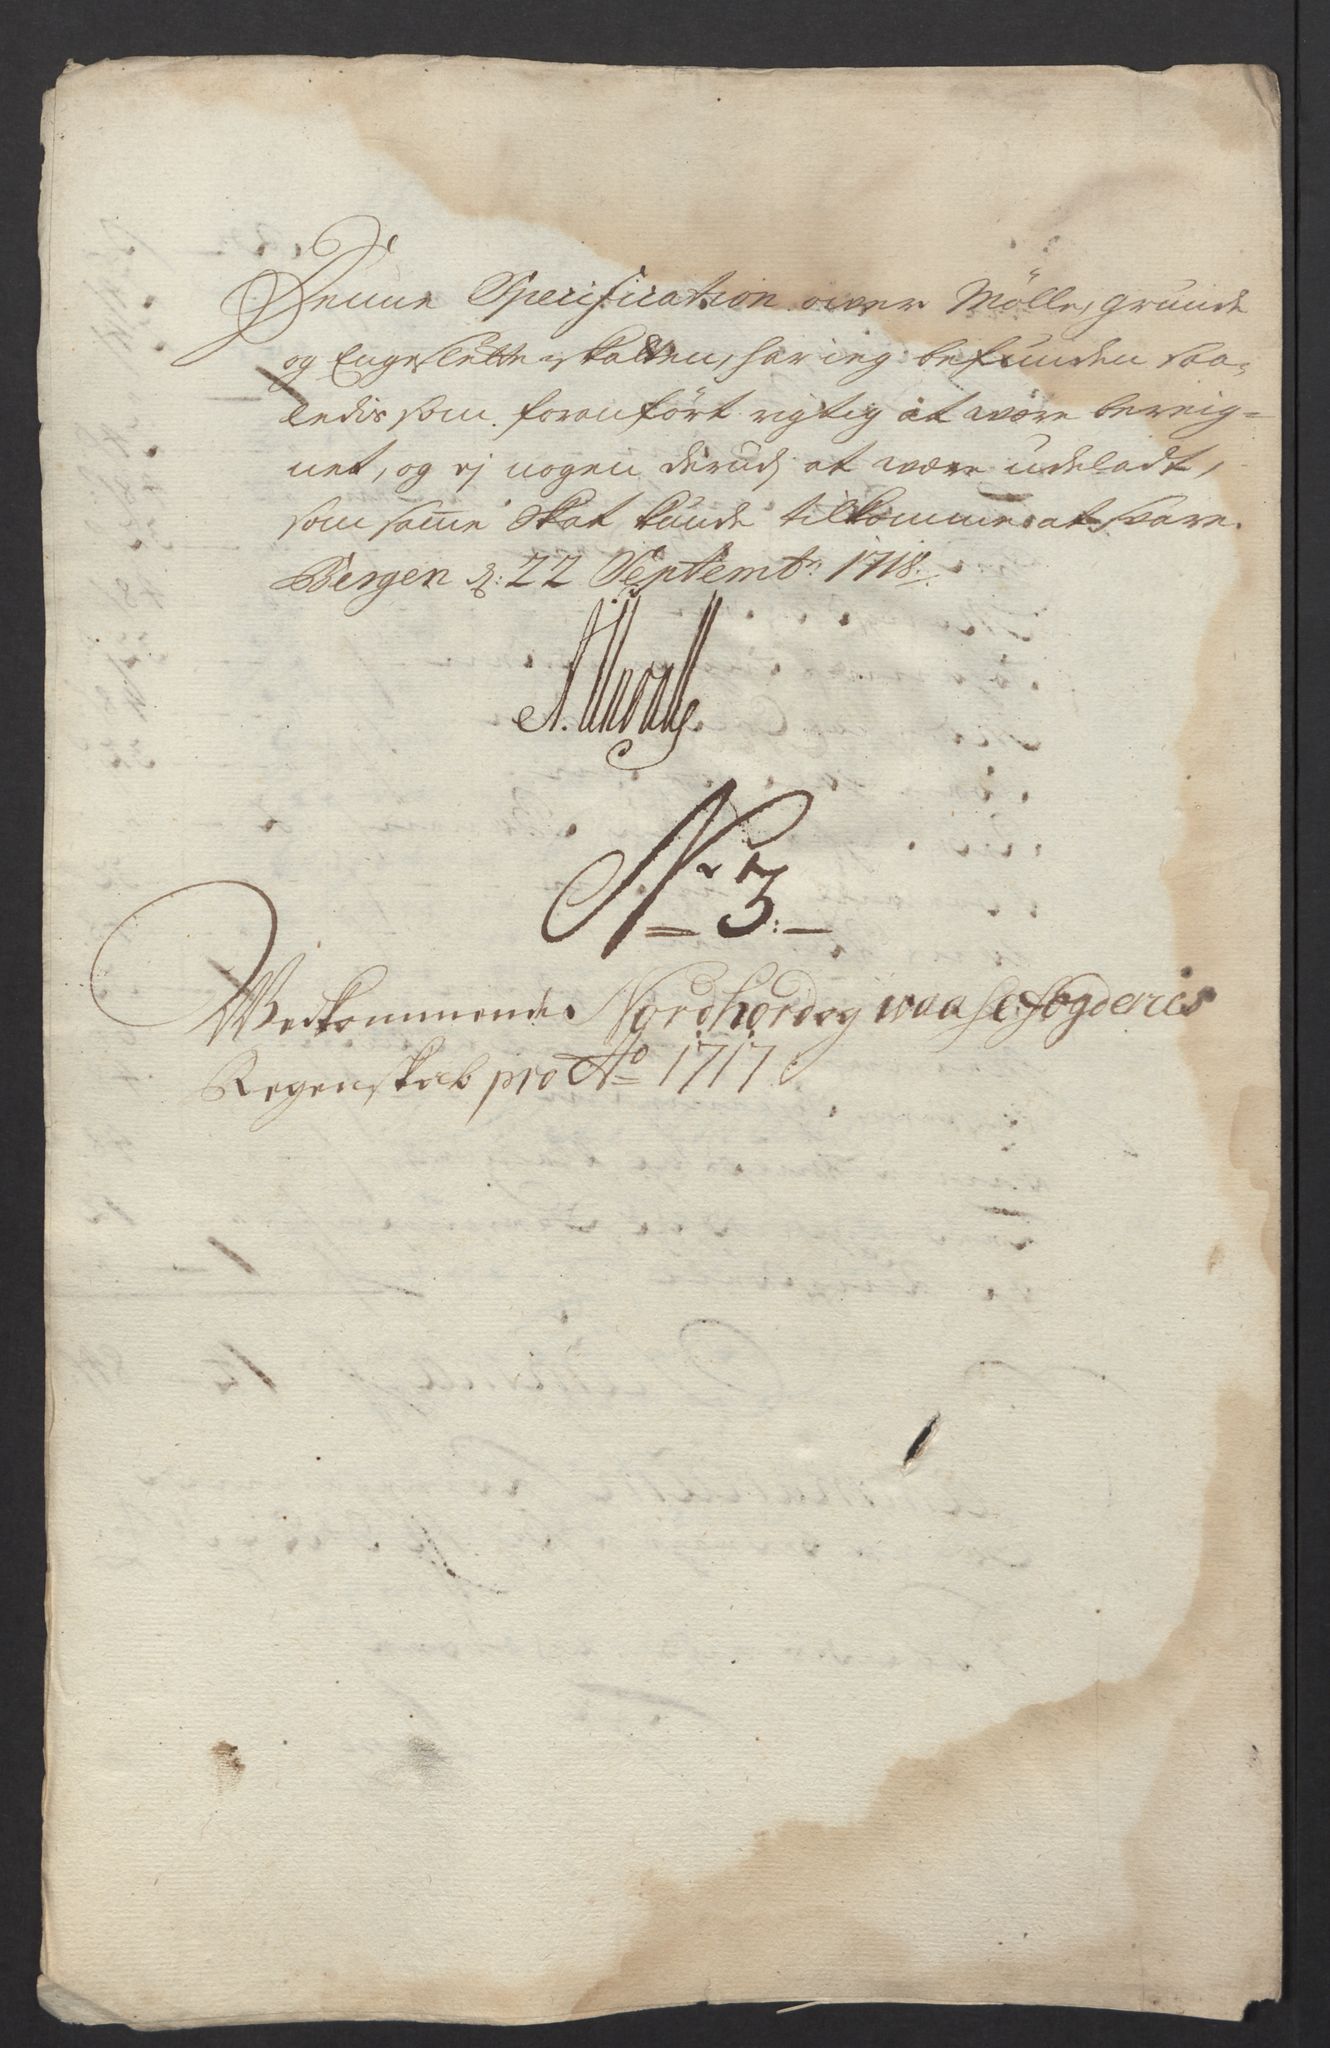 Denne Specification over Mölle, grunde
og Engeslette skatten, har ieg befunden saa-
ledis som foranfört rigtig at være bereig=
net, og ej nogen derud at være udeladt,
som same Skat kunde tilkomme at svare.
Bergen d: 22 Septembr 1718.
No 3
Vedkommende Nordhordog waase fogderies
Regenskab pro Ao 1717